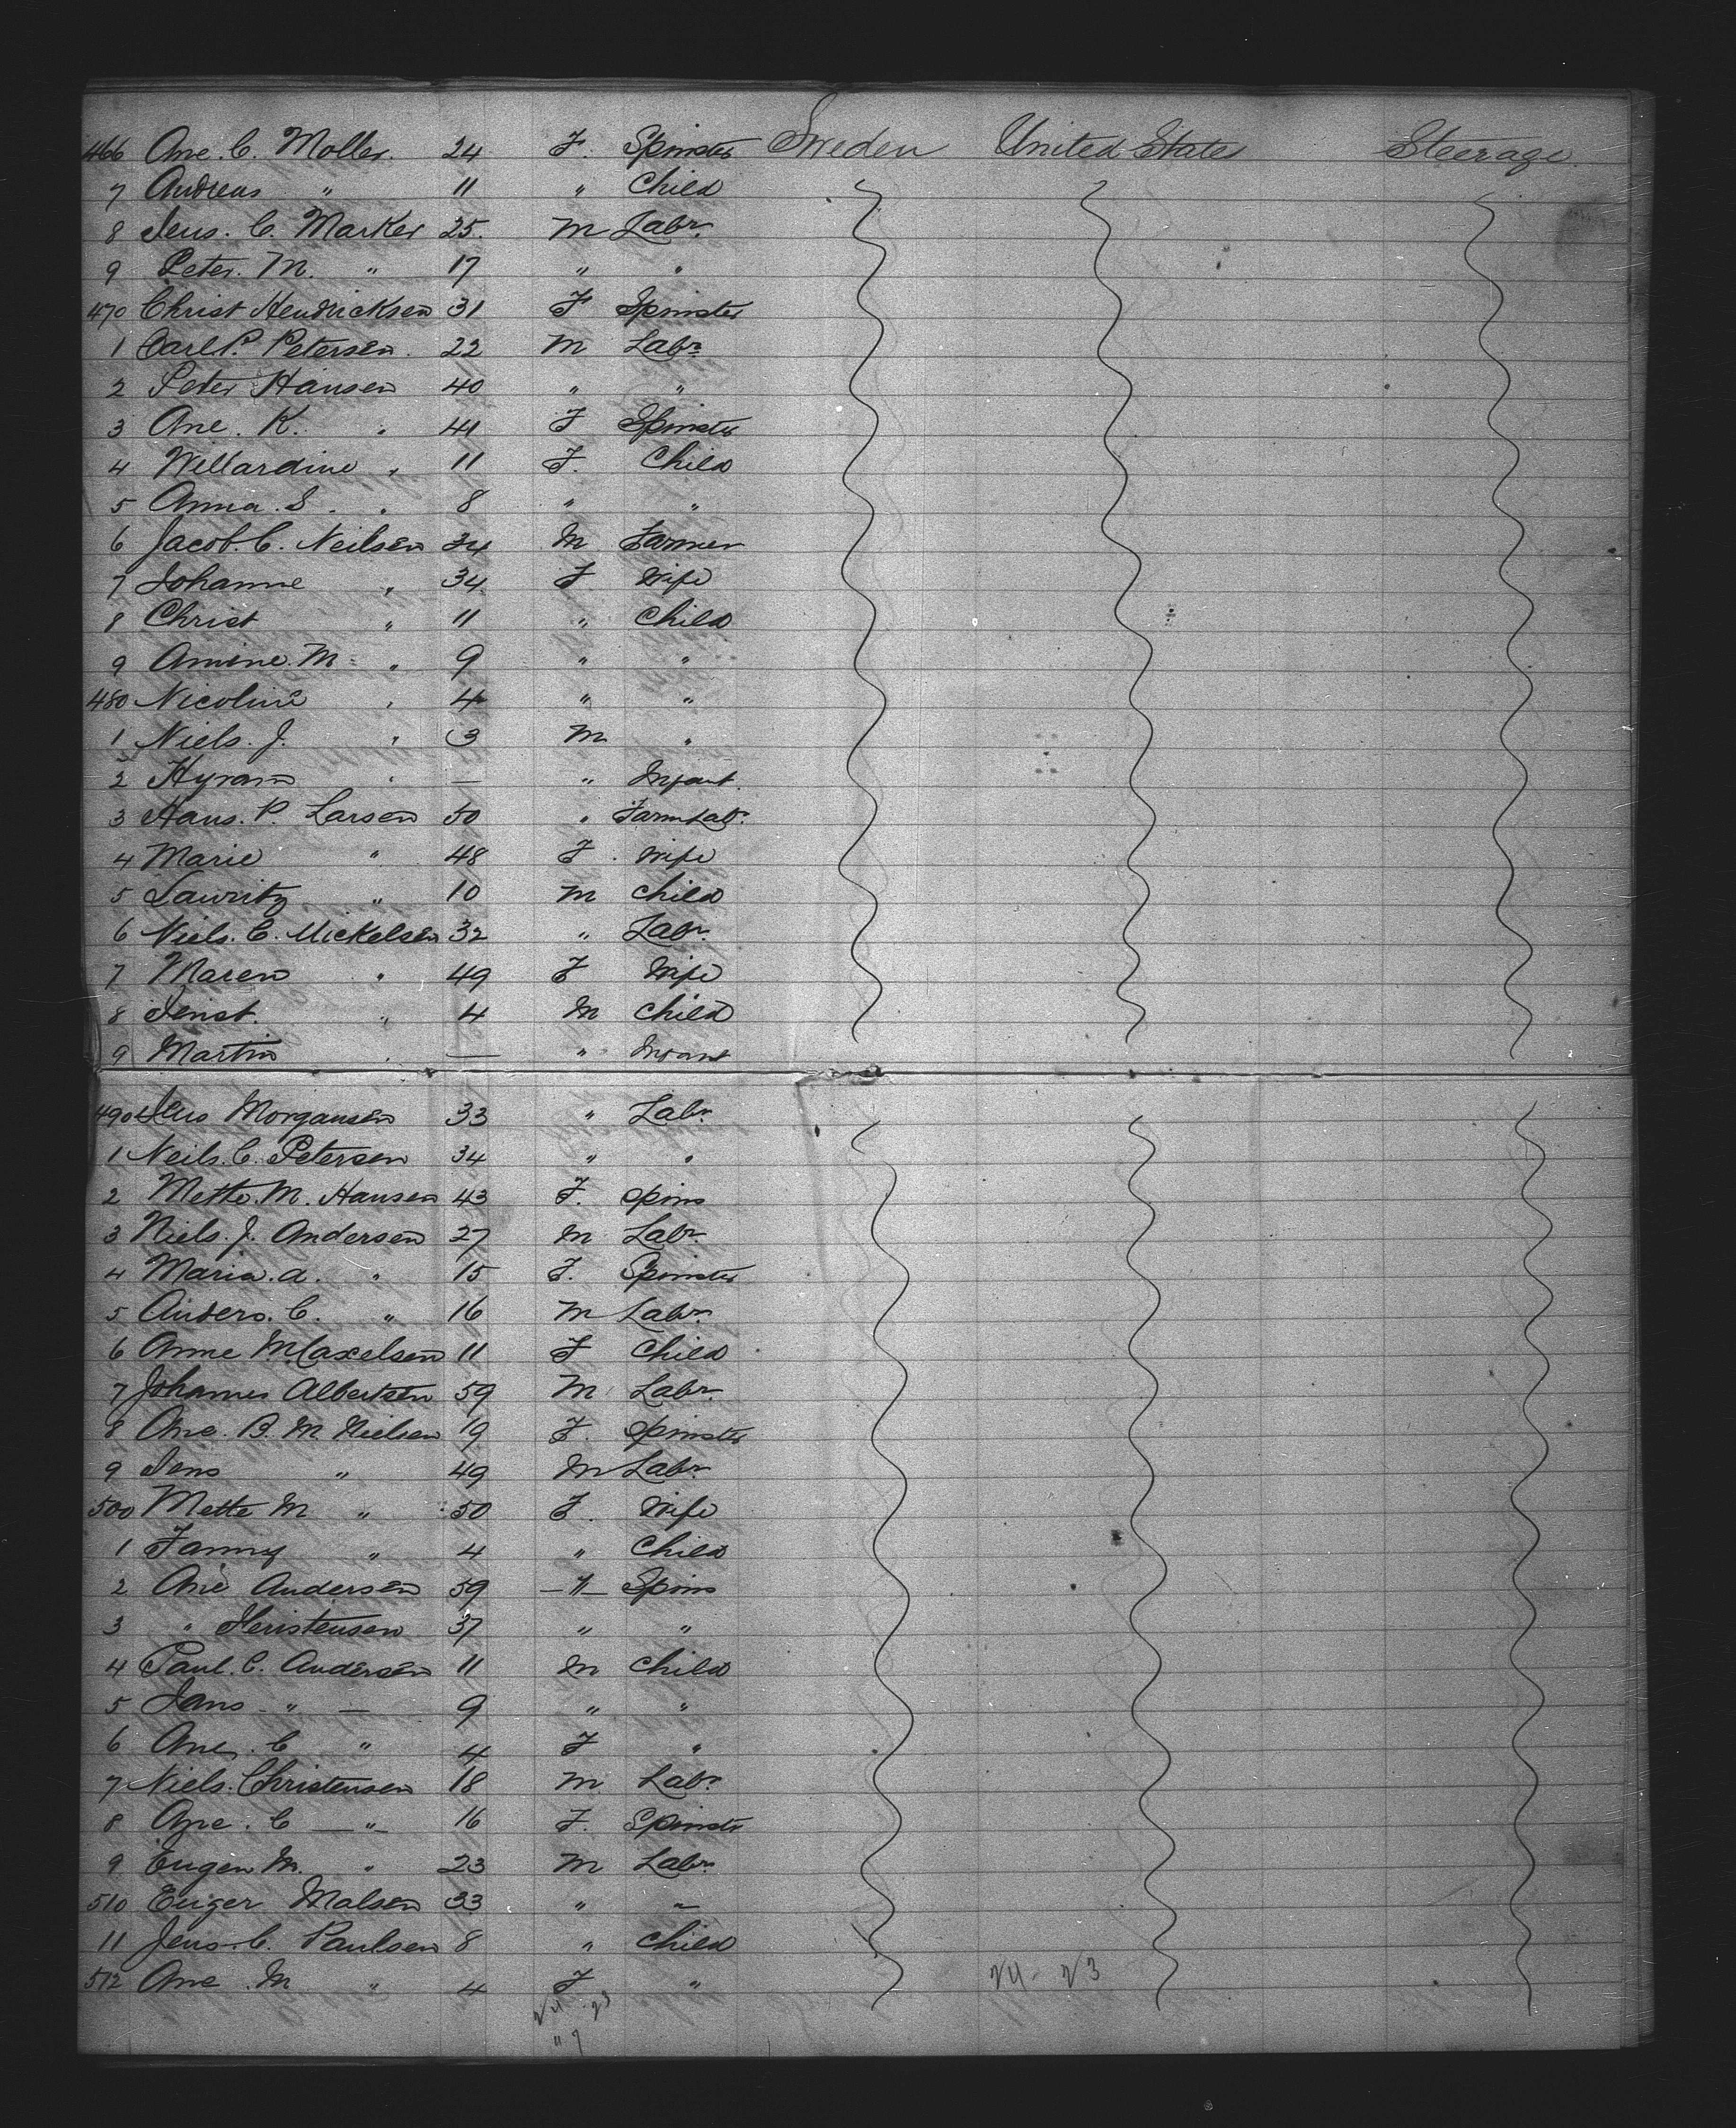 466 Ane. C. Moller. 24 F. Spinster Sweden United States Steerage
7 Andreas " 11 " Child
8 Jens. C. Marker 25. M Labr.
9 Peter. M. " 17 " "
470 Christ Hendricksen 31 F Spinster
1 Carl. P. Petersen. 22 M Labr.
2 Peter Hansen 40 " "
3 Ane. K. " 41 F Spinster
4 Willardine " 11 F. Child
5 Anna. S. " 8 " "
6 Jacob. C. Neilsen 34 M Farmer
7 Johanne " 34. F. Wife
8 Christ " 11 " Child
9 Amine. M. " 9 " "
480 Nicoline " 4 " "
1 Niels. J. " 3 M "
2 Hyram " — " Infant.
3 Hans. P. Larsen 50 " Farm Labr.
4 Marie " 48 F. Wife
5 Lawritz " 10 M Child
6 Niels. C. Mickelsen 32 " Labr.
7 Maren " 49 F Wife
8 Jenst. " 4 M Child
9 Martin " — " Infant
490 Jens Morgansen 33 " Labr.
1 Neils. C. Petersen 34 " "
2 Mette. M. Hansen 43 F. Spins
3 Niels. J. Andersen 27 M Labr.
4 Maria. A. " 15 F. Spinster
5 Anders. C. " 16 M Labr.
6 Anne M. Caxelsen 11 F Child
7 Johannes Albertsen 59 M Labr.
8 Ane. B. M. Nielsen 19 F. Spinster
9 Jens " 49 M Labr.
500 Mette M " 50 F. Wife
1 Fanny " 4 " Child
2 Ane Andersen 59 —"— Spins
3 " Heristensen 37 " "
4 Paul. C. Andersen 11 M Child
5 Jans " — 9 " "
6 Ane. C " 4 F "
7 Niels. Christensen 18 M Labr.
8 Ane. C —"— 16 F. Spinstr
9 Eugen M. " 23 M Labr.
510 Euger Malsen 33 " "
11 Jens. C. Paulsen 8 " Child
512 Ane. M " 4 F "
24 23
24 23
" 7